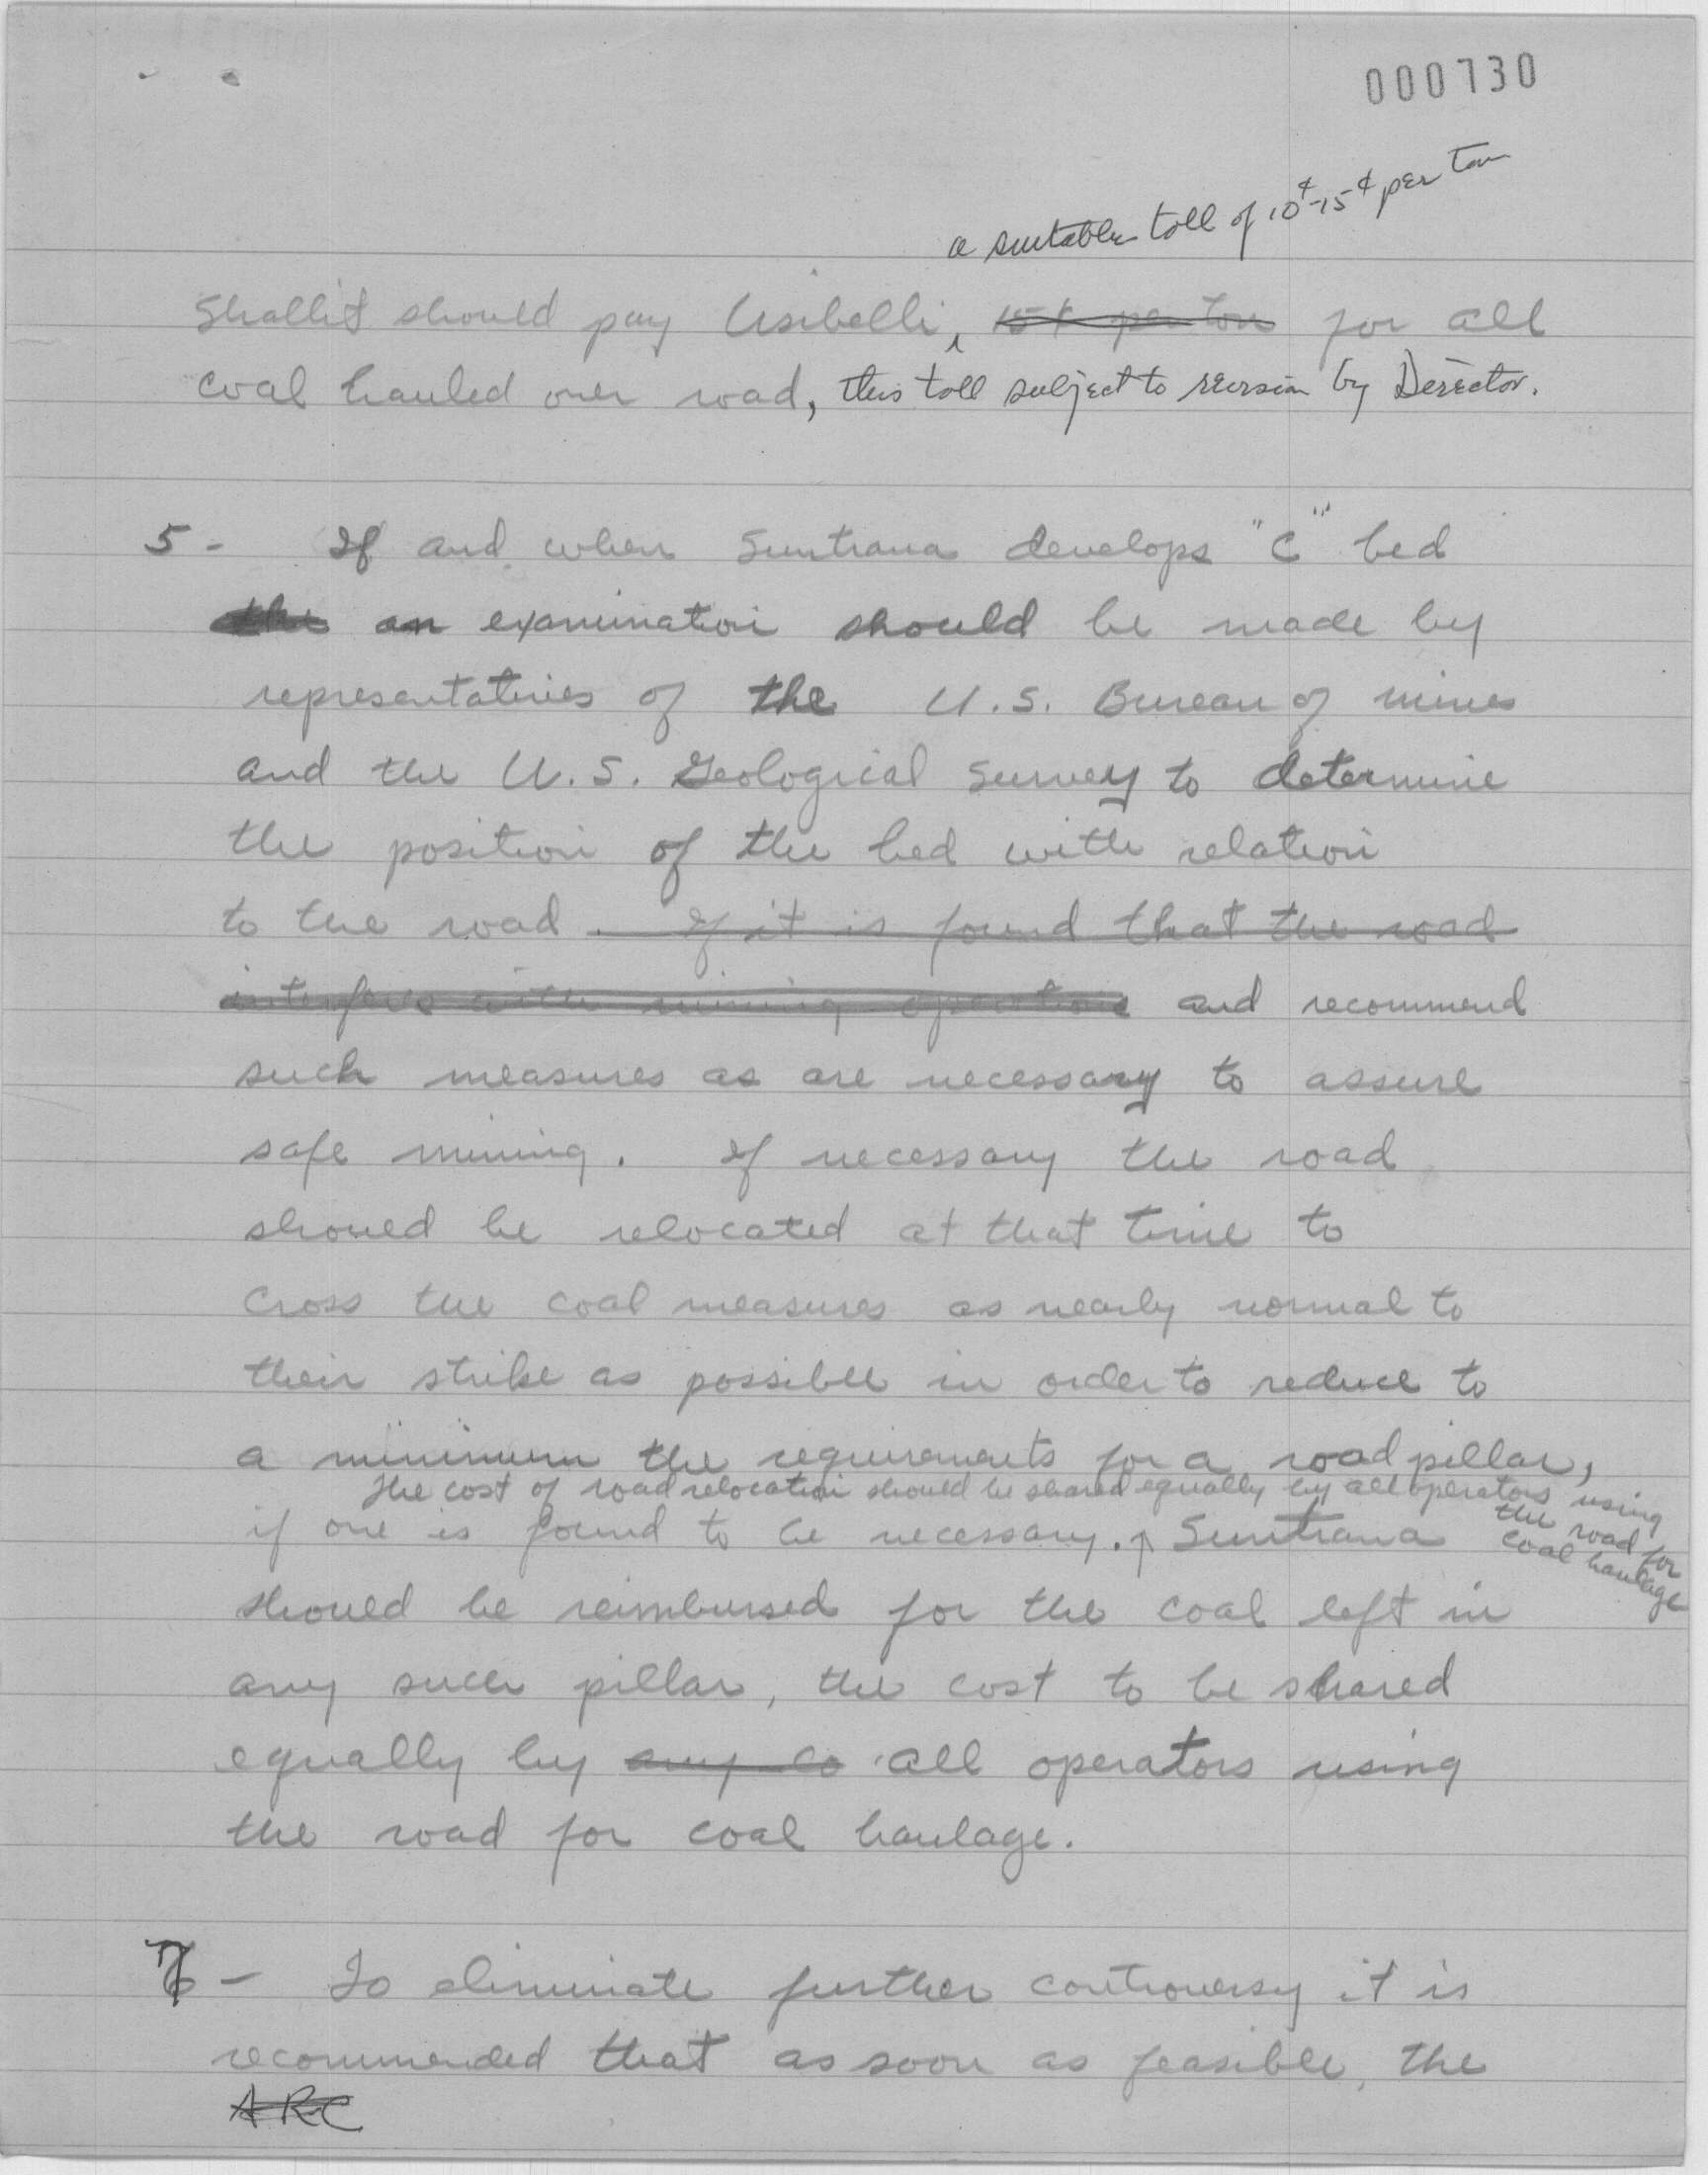 000730
a suitable toll of 10¢-15¢ per ton
Shallit should pay Usibelli, 15¢ per ton for all
coal hauled over road, this toll subject to revision by Director.
5 - If and when Suntrana develops "C" bed
the an examination should be made by
representatives of the U.S. Bureau of mines
and the U.S. Geological Survey to determine
the position of the bed with relation
to the road. If it is found that the road
interferes with mining operations and recommend
such measures as are necessary to assure
safe mining. If necessary the road
should be relocated at that time to
cross the coal measures as nearly normal to
their strike as possible in order to reduce to
a minimum the requirements for a road pillar,
The cost of road relocation should be shared equally by all operators using
the road for
coal haulage
if one is found to be necessary. Suntrana
should be reimbursed for the coal left in
any such pillar, the cost to be shared
equally by any co all operators using
the road for coal haulage.
7 - To eliminate further controversy it is
recommended that as soon as feasible, the
ARC